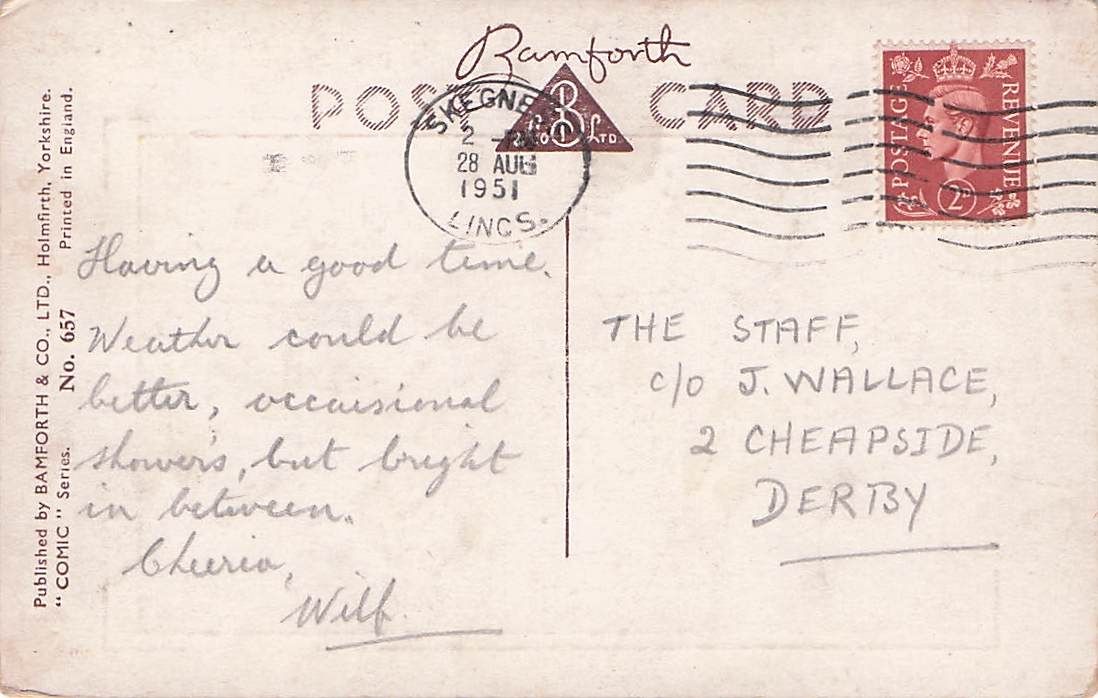 Bamforth
POST CARD
B
& Co LTD
SKEGNESS
2 - PM
28 AUG
1951
LINCS.
POSTAGE REVENUE
2D
Published by BAMFORTH & CO., LTD., Holmfirth, Yorkshire.
"COMIC" Series. No. 657 Printed in England.
Having a good time.
Weather could be
better, occaisional
showers, but bright
in between.
Cheerio,
Wilf.
THE STAFF,
c/o J. WALLACE,
2 CHEAPSIDE,
DERBY